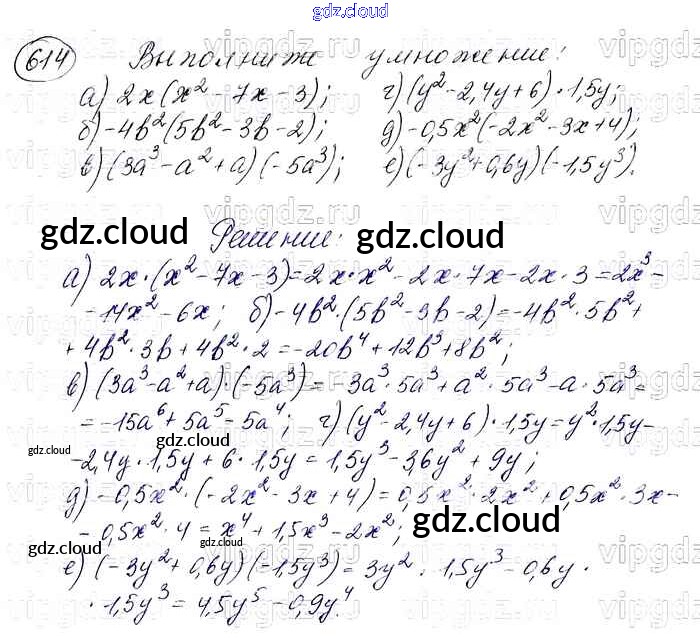 gdz.cloud
614 Выполните умножение:
а) 2x(x² - 7x - 3); г) (y² - 2,4y + 6) · 1,5y;
б) -4b²(5b² - 3b - 2); д) -0,5x²(-2x² - 3x + 4);
в) (3a³ - a² + a)(-5a³); е) (-3y² + 0,6y)(-1,5y³).
gdz.cloud Решение: gdz.cloud
а) 2x · (x² - 7x - 3) = 2x · x² - 2x · 7x - 2x · 3 = 2x³ -
- 14x² - 6x; б) -4b² · (5b² - 3b - 2) = -4b² · 5b² +
+ 4b² · 3b + 4b² · 2 = -20b⁴ + 12b³ + 8b²;
в) (3a³ - a² + a) · (-5a³) = -3a³ · 5a³ + a² · 5a³ - a · 5a³ =
= -15a⁶ + 5a⁵ - 5a⁴; г) (y² - 2,4y + 6) · 1,5y = y² · 1,5y -
gdz.cloud gdz.cloud
- 2,4y · 1,5y + 6 · 1,5y = 1,5y³ - 3,6y² + 9y;
д) -0,5x² · (-2x² - 3x + 4) = 0,5x² · 2x² + 0,5x² · 3x -
- 0,5x² · 4 = x⁴ + 1,5x³ - 2x²; gdz.cloud
gdz.cloud gdz.cloud
е) (-3y² + 0,6y)(-1,5y³) = 3y² · 1,5y³ - 0,6y ·
· 1,5y³ = 4,5y⁵ - 0,9y⁴.
vipgdz.ru